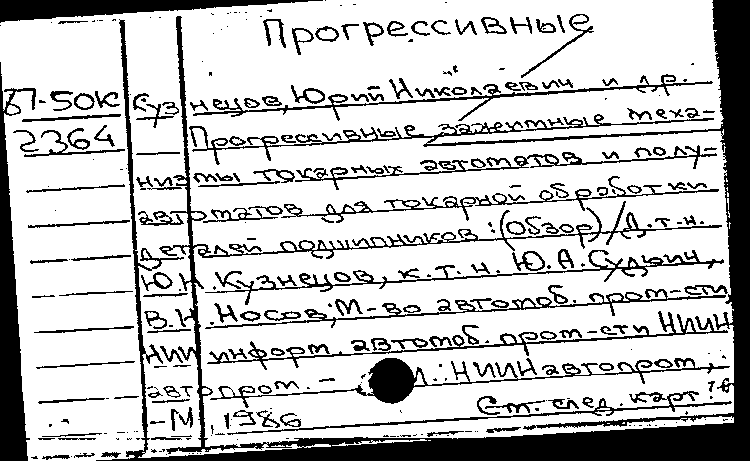 Прогрессивные
87-50К Кузнецов, Юрий Николаевич и др.
2364 Прогрессивные зажимные меха=
низмы токарных автоматов и полу=
автоматов для токарной обработки
деталей подшипников: (Обзор) / Д.т.н.
Ю.Н. Кузнецов, к.т.н. Ю.А. Сулыин,
В.Н. Носов; М-во автомоб. пром-сти,
НИИ информ. автомоб. пром-сти НИИН
автопром. - М.: НИИНавтопром,
-М, 1986 См. след. карт.